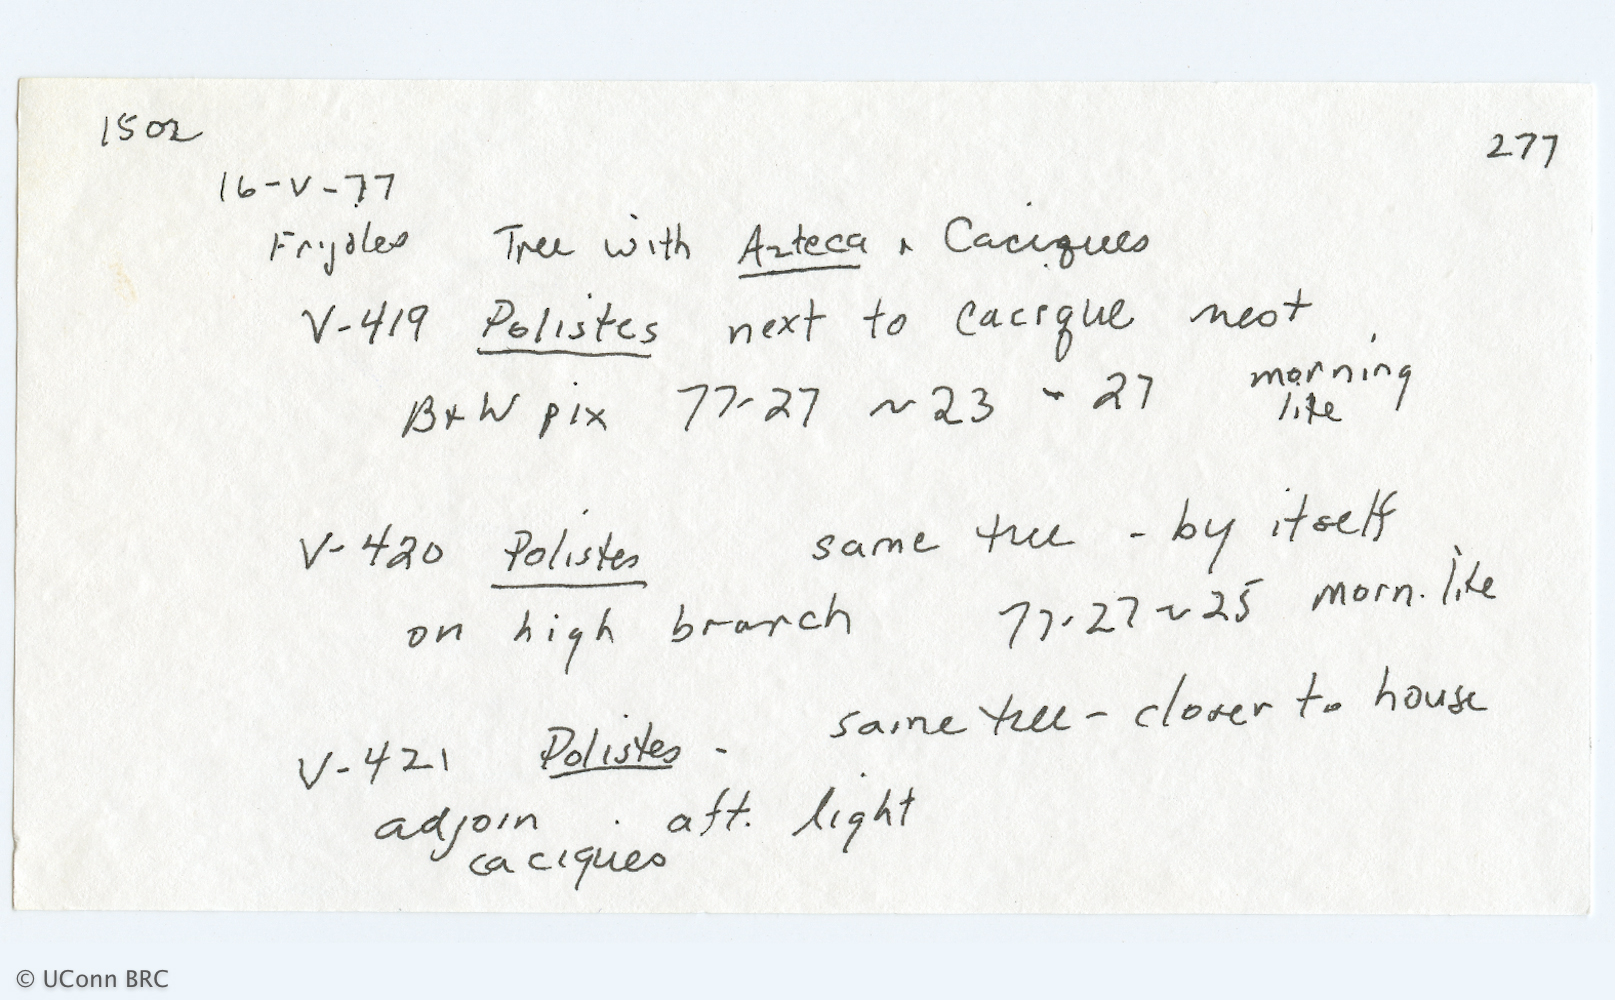 1502
277
16-V-77
Frijoles Tree with Azteca + Caciques
V-419 Polistes next to cacique nest
B+W pix 77-27 ~23 - 27 morning
lite
V-420 Polistes same tree - by itself
on high branch 77-27~25 morn. lite
V-421 Polistes - same tree - closer to house
adjoin . aft. light
caciques
© UConn BRC